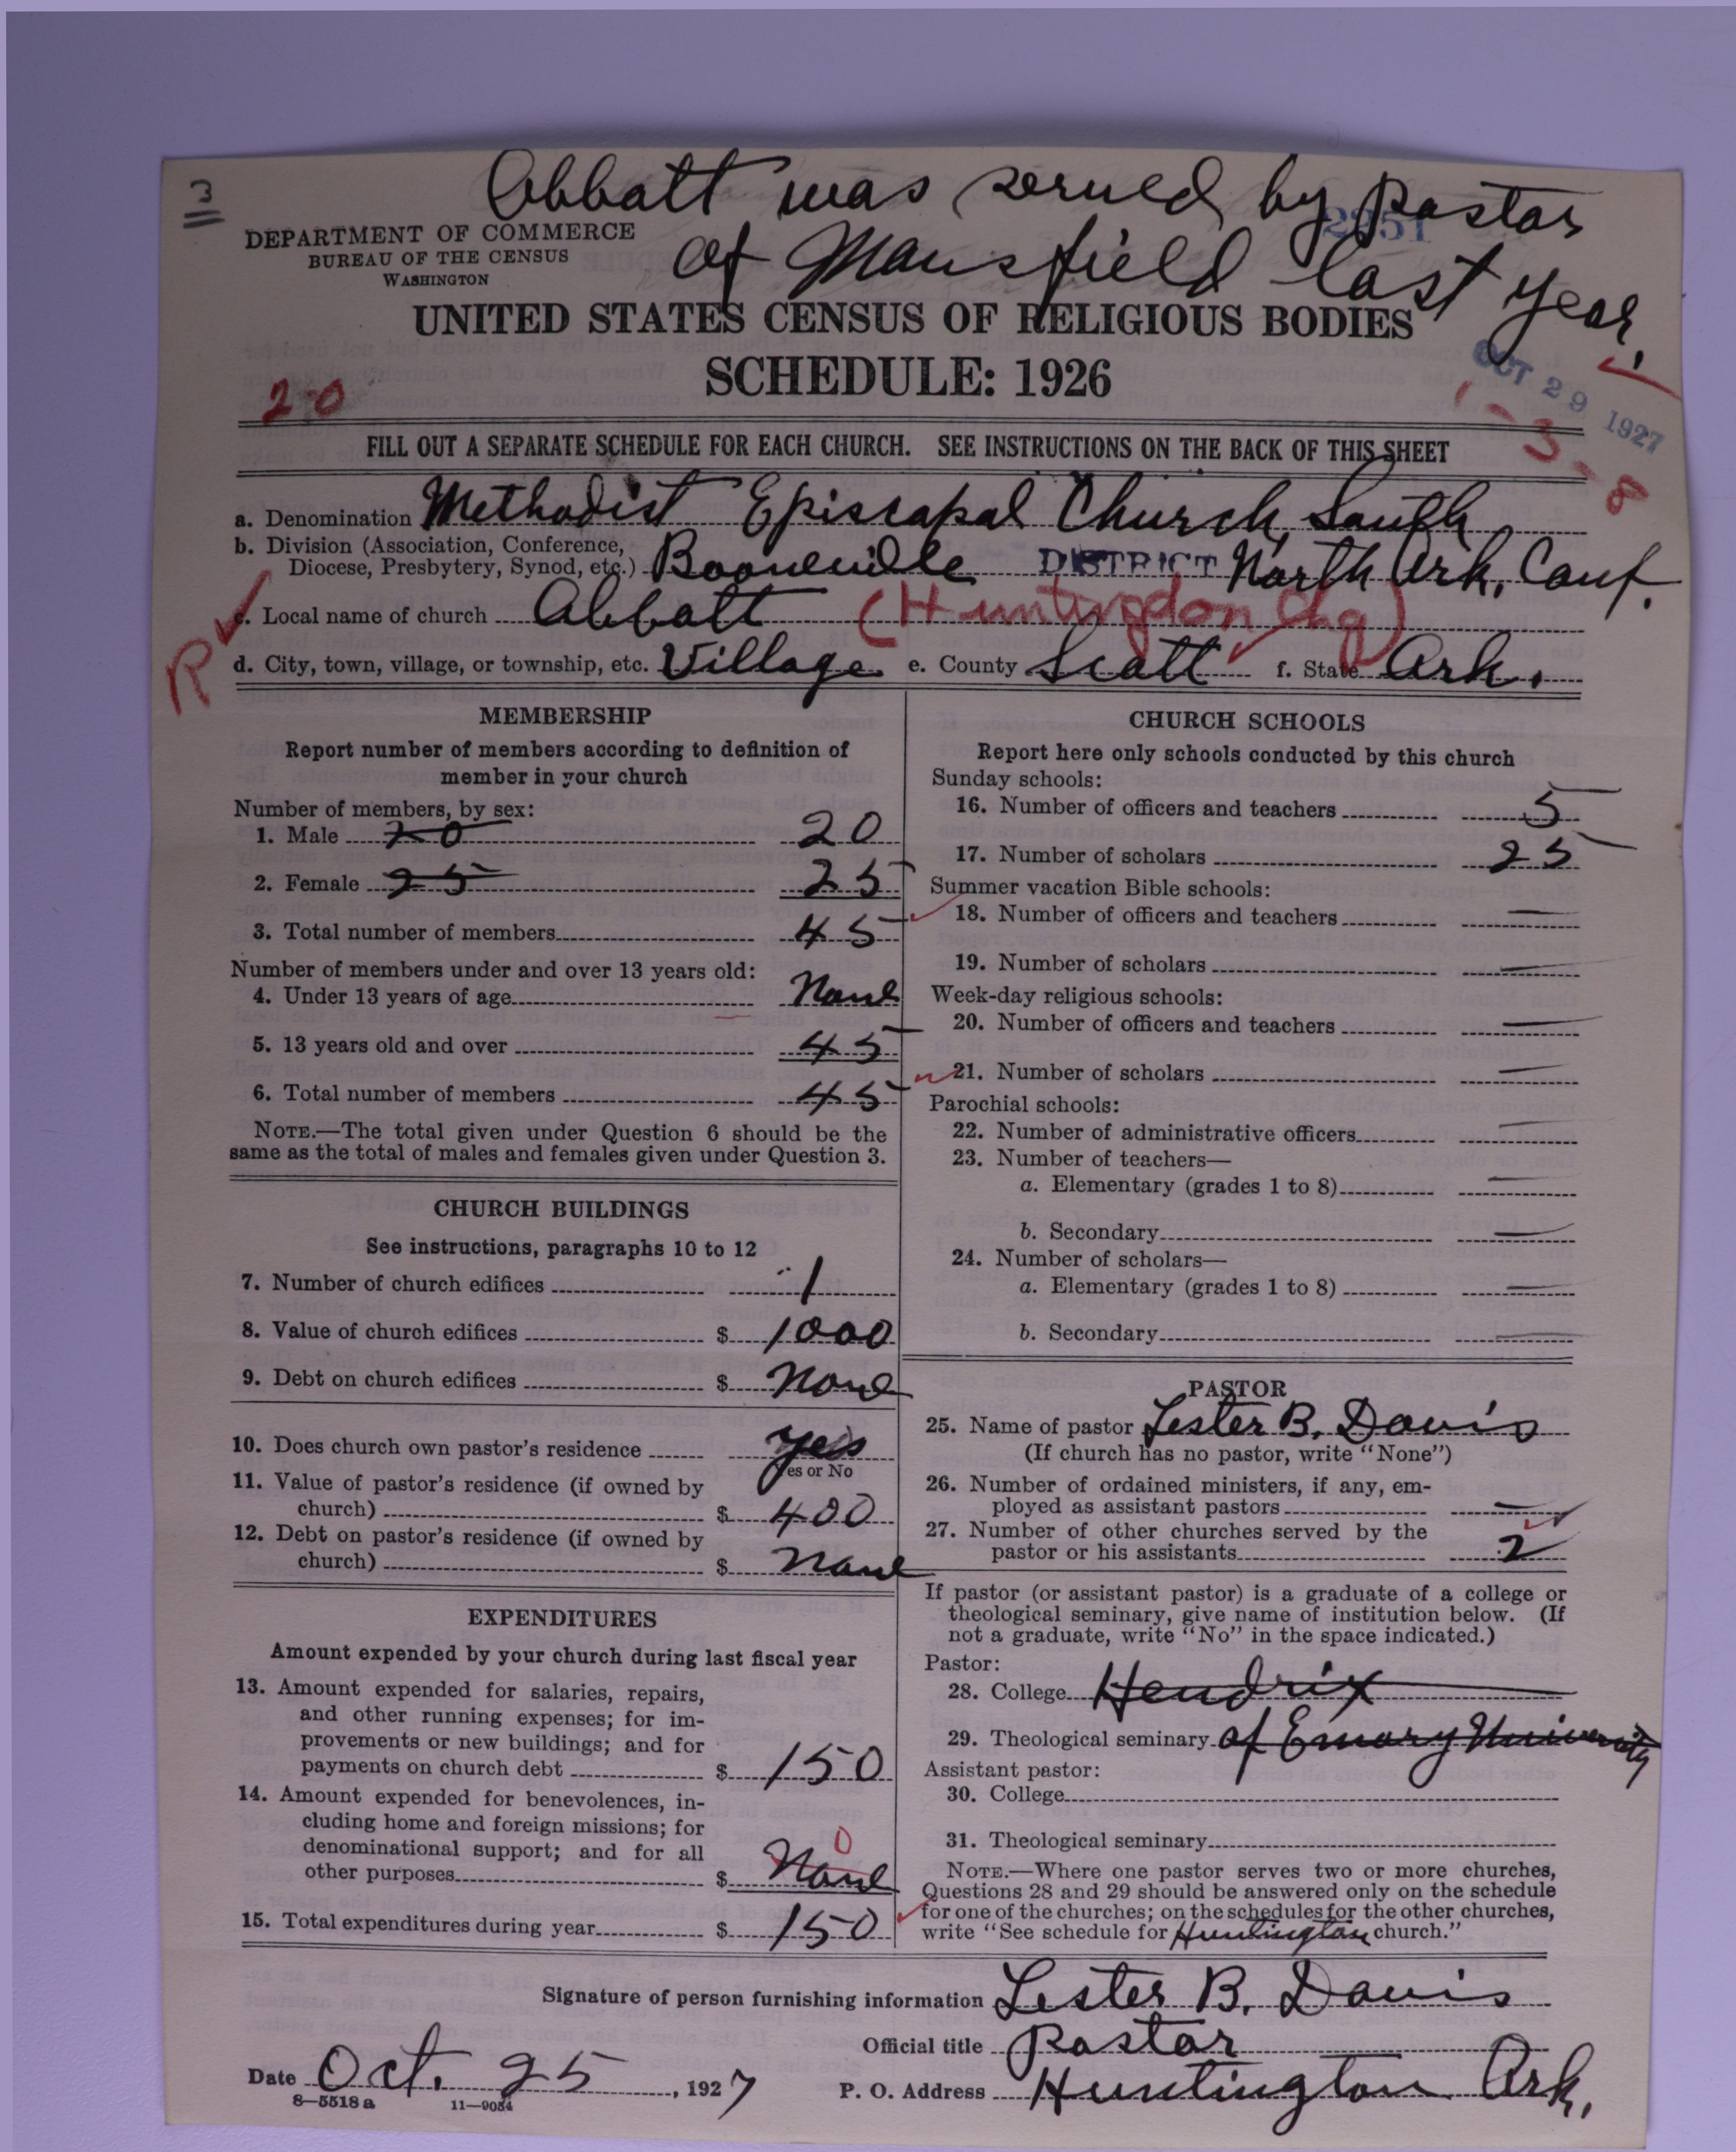 3
Abbatt was served by Pastor
2251
of Mansfield last year.
DEPARTMENT OF COMMERCE
BUREAU OF THE CENSUS
WASHINGTON
UNITED STATES CENSUS OF RELIGIOUS BODIES
SCHEDULE: 1926
OCT 29 1927
20
1-3-8
FILL OUT A SEPARATE SCHEDULE FOR EACH CHURCH. SEE INSTRUCTIONS ON THE BACK OF THIS SHEET
a. Denomination Methodist Episcapal Church, South
b. Division (Association, Conference,
Diocese, Presbytery, Synod, etc.) Booneville DISTRICT North Ark. Conf.
c. Local name of church Abbatt (Huntingdon Chg)
R
d. City, town, village, or township, etc. Village e. County Scott f. State Ark.
MEMBERSHIP
Report number of members according to definition of
member in your church
Number of members, by sex:
1. Male 20 20
2. Female 25 25
3. Total number of members 45
Number of members under and over 13 years old:
4. Under 13 years of age None
5. 13 years old and over 45
6. Total number of members 45
NOTE.—The total given under Question 6 should be the
same as the total of males and females given under Question 3.
CHURCH BUILDINGS
See instructions, paragraphs 10 to 12
7. Number of church edifices 1
8. Value of church edifices $ 1000
9. Debt on church edifices $ None
10. Does church own pastor's residence yes
Yes or No
11. Value of pastor's residence (if owned by
church) $ 400
12. Debt on pastor's residence (if owned by
church) $ None
EXPENDITURES
Amount expended by your church during last fiscal year
13. Amount expended for salaries, repairs,
and other running expenses; for im-
provements or new buildings; and for
payments on church debt $ 150
14. Amount expended for benevolences, in-
cluding home and foreign missions; for
denominational support; and for all
other purposes $ None 0
15. Total expenditures during year $ 150
CHURCH SCHOOLS
Report here only schools conducted by this church
Sunday schools:
16. Number of officers and teachers 5
17. Number of scholars 25
Summer vacation Bible schools:
18. Number of officers and teachers —
19. Number of scholars —
Week-day religious schools:
20. Number of officers and teachers —
21. Number of scholars —
Parochial schools:
22. Number of administrative officers —
23. Number of teachers—
a. Elementary (grades 1 to 8) —
b. Secondary —
24. Number of scholars—
a. Elementary (grades 1 to 8) —
b. Secondary —
PASTOR
25. Name of pastor Lester B. Davis
(If church has no pastor, write "None")
26. Number of ordained ministers, if any, em-
ployed as assistant pastors —
27. Number of other churches served by the
pastor or his assistants 2
If pastor (or assistant pastor) is a graduate of a college or
theological seminary, give name of institution below. (If
not a graduate, write "No" in the space indicated.)
Pastor:
28. College Hendrix
29. Theological seminary of Emory University
Assistant pastor:
30. College
31. Theological seminary
NOTE.—Where one pastor serves two or more churches,
Questions 28 and 29 should be answered only on the schedule
for one of the churches; on the schedules for the other churches,
write "See schedule for Huntington church."
Signature of person furnishing information Lester B. Davis
Official title Pastor
Date Oct. 25, 1927 P. O. Address Huntington Ark.
8—5518 a 11—9054